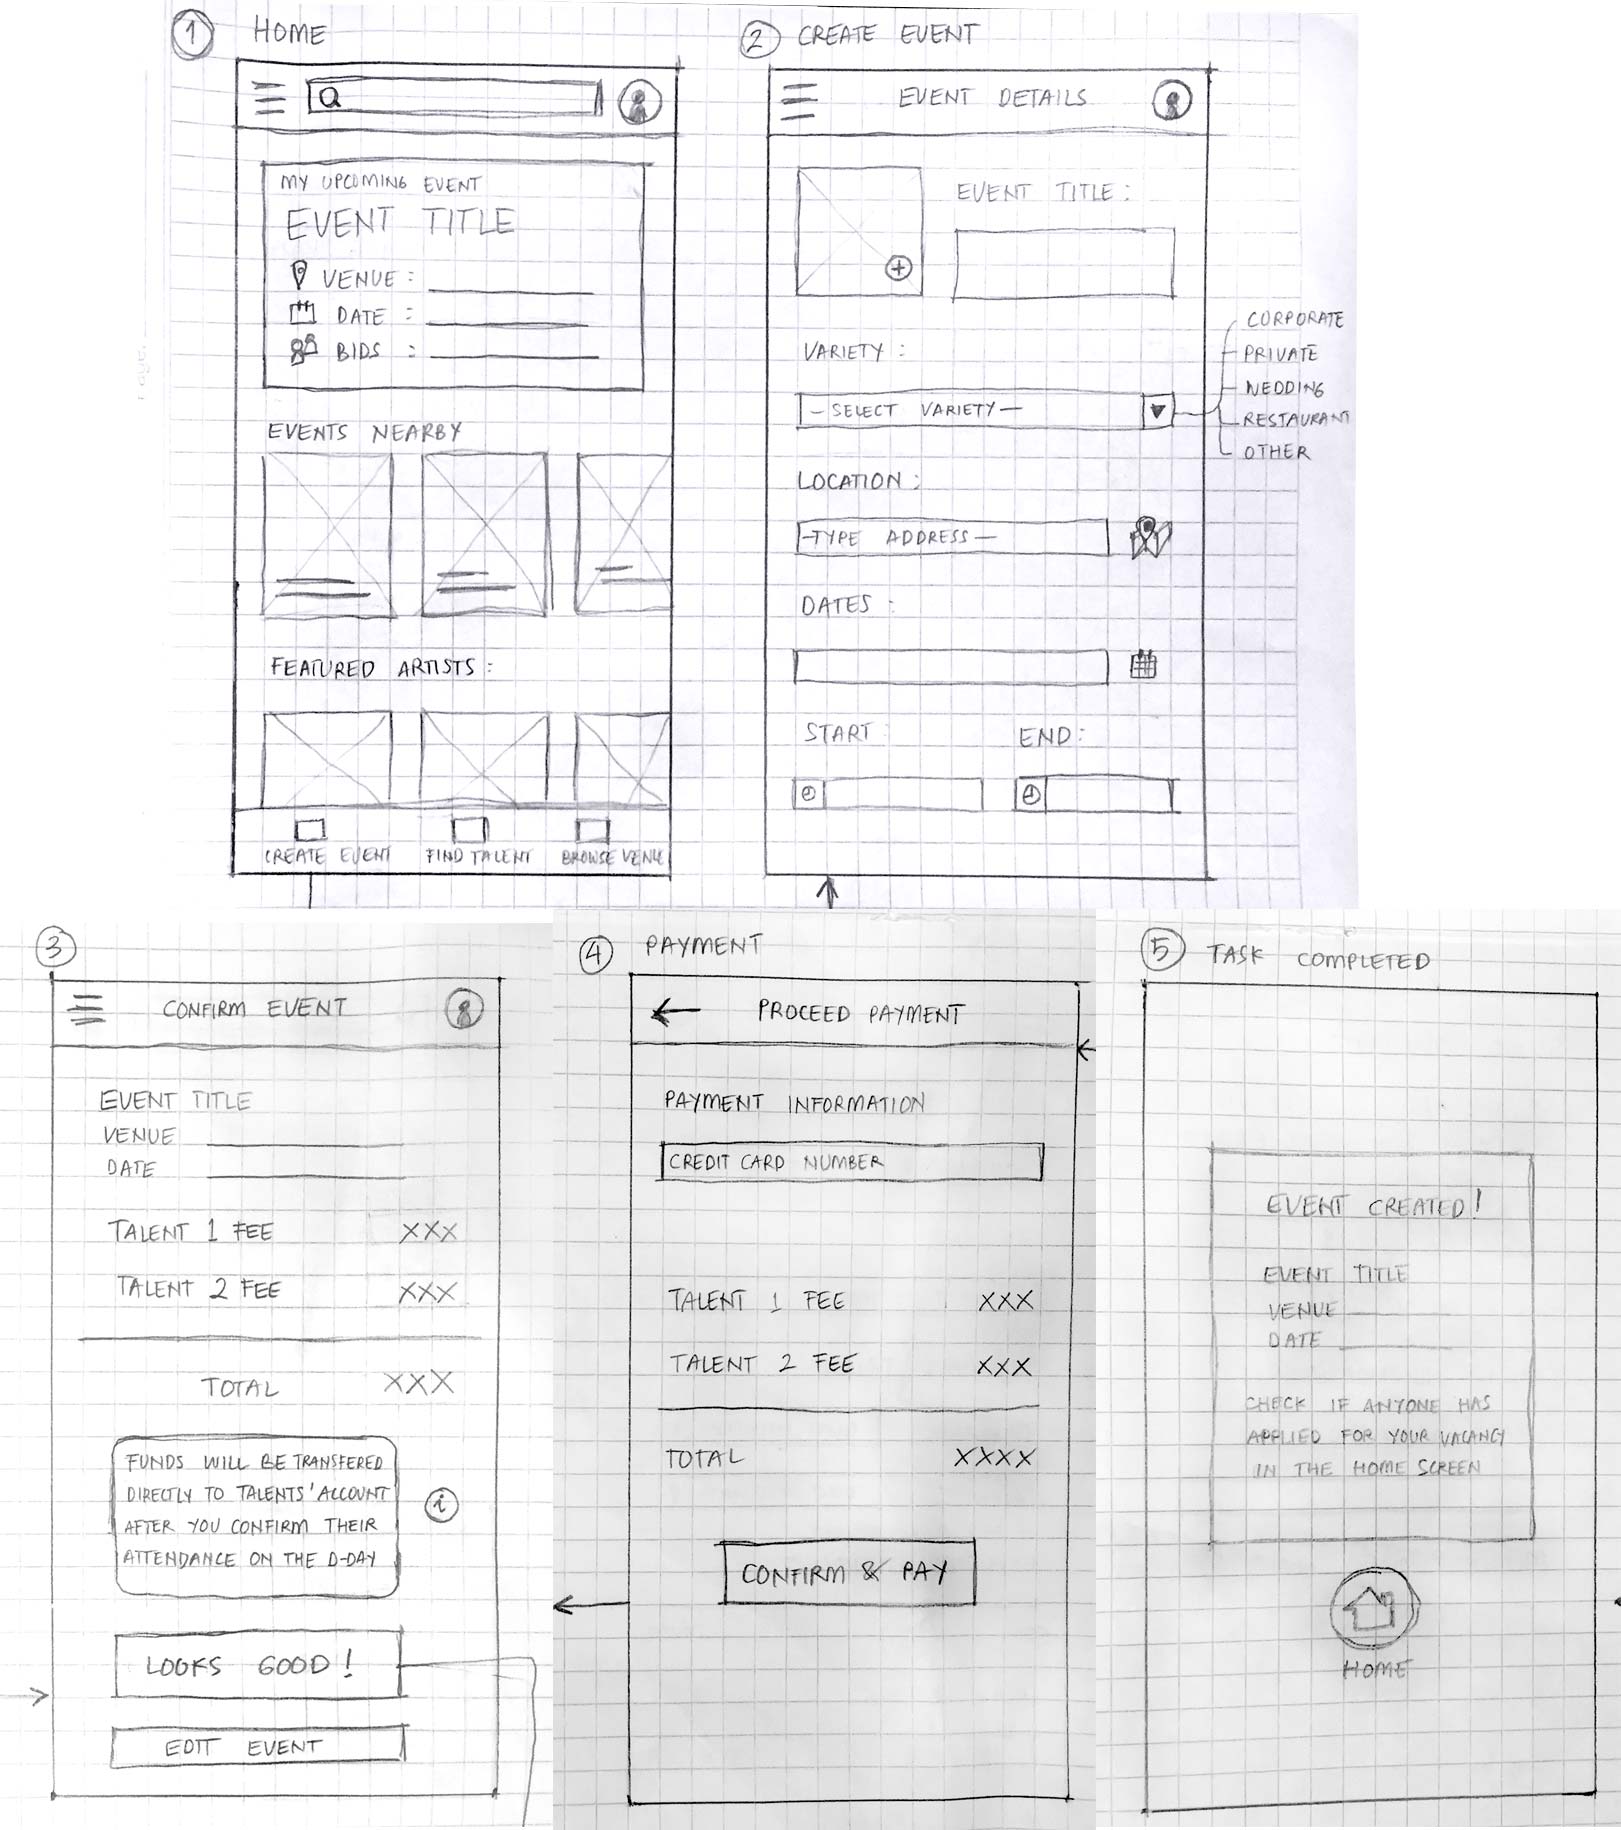 1 HOME
MY UPCOMING EVENT
EVENT TITLE
VENUE :
DATE :
BIDS :
EVENTS NEARBY
FEATURED ARTISTS :
CREATE EVENT FIND TALENT BROWSE VENUE
2 CREATE EVENT
EVENT DETAILS
EVENT TITLE :
VARIETY :
- SELECT VARIETY -
CORPORATE
PRIVATE
WEDDING
RESTAURANT
OTHER
LOCATION :
-TYPE ADDRESS-
DATES :
START: END:
3
CONFIRM EVENT
EVENT TITLE
VENUE
DATE
TALENT 1 FEE XXX
TALENT 2 FEE XXX
TOTAL XXX
FUNDS WILL BE TRANSFERED
DIRECTLY TO TALENTS' ACCOUNT
AFTER YOU CONFIRM THEIR
ATTENDANCE ON THE D-DAY
i
LOOKS GOOD!
EDIT EVENT
4 PAYMENT
PROCEED PAYMENT
PAYMENT INFORMATION
CREDIT CARD NUMBER
TALENT 1 FEE XXX
TALENT 2 FEE XXX
TOTAL XXXX
CONFIRM & PAY
5 TASK COMPLETED
EVENT CREATED!
EVENT TITLE
VENUE
DATE
CHECK IF ANYONE HAS
APPLIED FOR YOUR VACANCY
IN THE HOME SCREEN
HOME